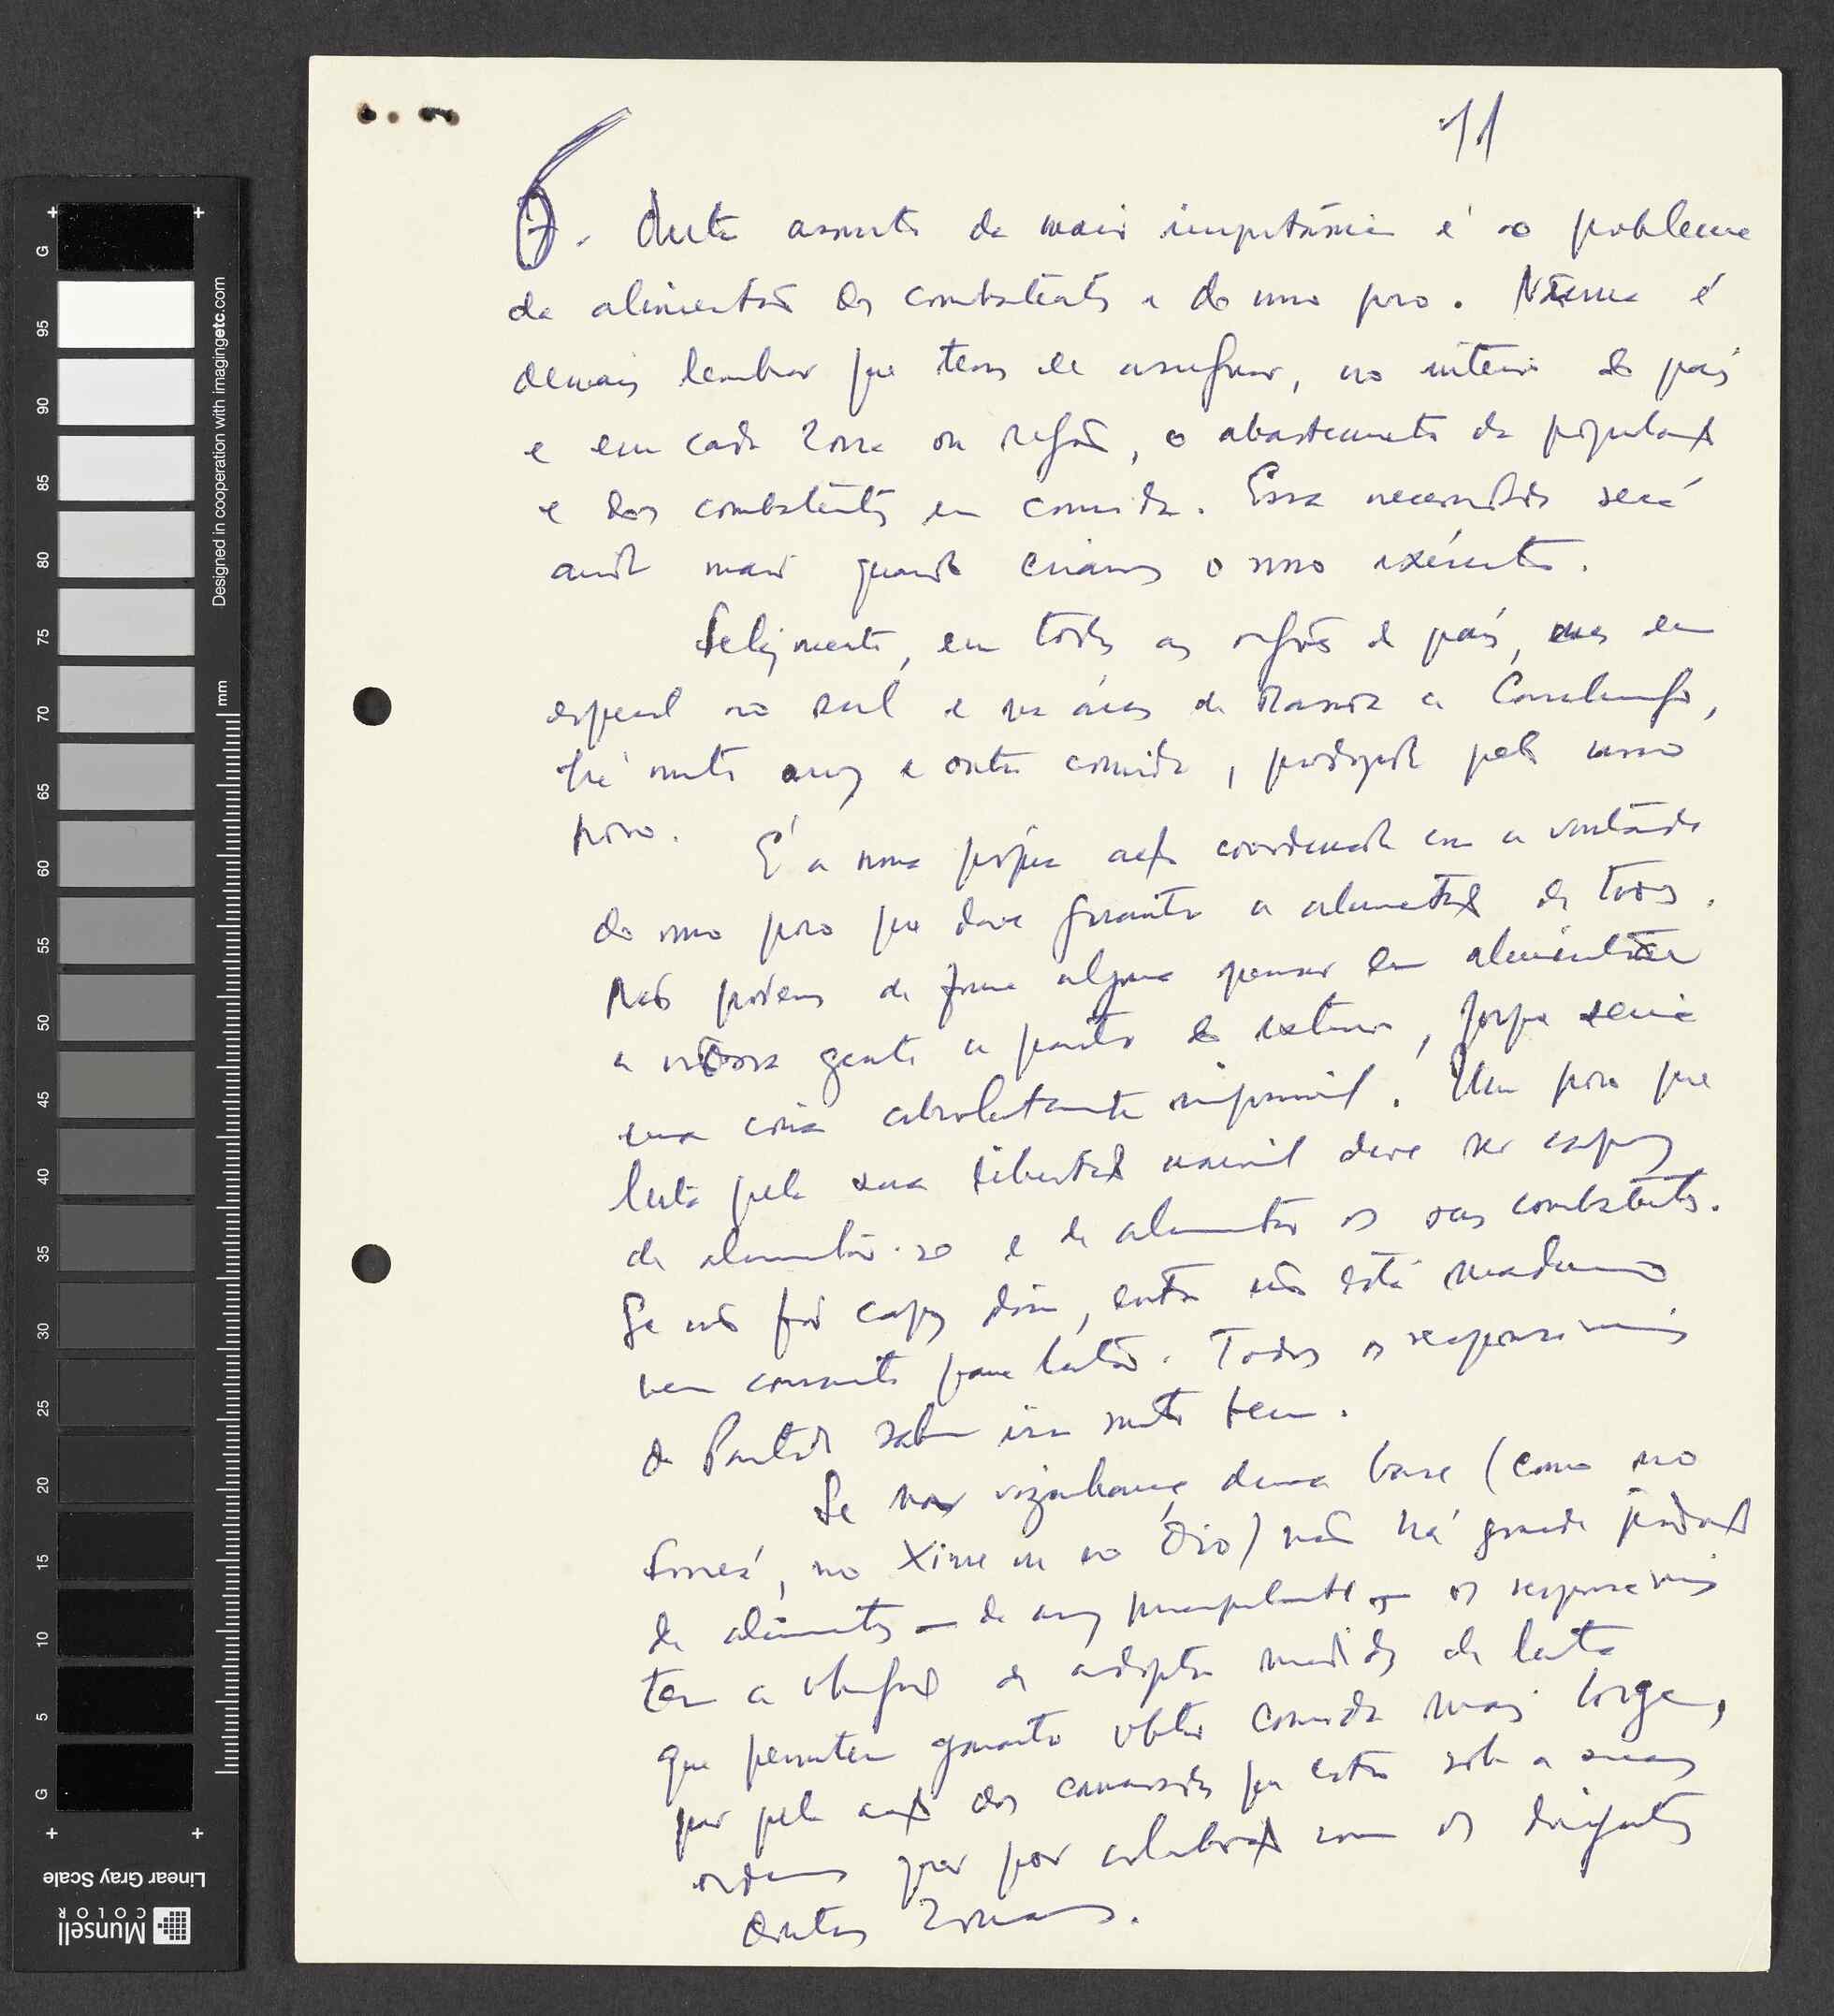 11
6. Outro assunto da maior importância é o problema
da alimentação dos combatentes e do nosso povo. Nunca é
demais lembrar que temos de assegurar, no interior do país
e em cada zona ou região, o abastecimento da população
e dos combatentes em comida. Essa necessidade será
ainda maior quando criarmos o nosso exército.
Felizmente, em todas as regiões do país, mas em
especial no sul e nas áreas de Mansoa a
há muito arroz e outra comida, produzida pelo nosso
povo. É a nossa própria acção coordenada com a vontade
do nosso povo que deve garantir a alimentação de todos.
Não podemos de forma alguma pensar em alimentar
a nossa gente a partir do exterior, porque seria
uma coisa absolutamente impossível. Um povo que
luta pela sua libertação nacional deve ser capaz
de alimentar-se e de alimentar os seus combatentes.
Se não for capaz disso, então não está maduro
nem consciente para lutar. Todos os responsáveis
do Partido sabem isso muito bem.
Se na vizinhança duma base (como no
Morés, no Xime ou no Óio) não há grande produção
de alimentos — de arroz principalmente — os responsáveis
têm a obrigação de adoptar medidas de luta
que permitem garantir obter comida mais longe,
quer pela acção dos camaradas que estão sob a suas
ordens quer por colaboração com os dirigentes
doutras zonas.
G 95 90 85 80 75 70 65 60 55 50 45 40 35 30 25 20 15 10 5 G
mm
Designed in cooperation with imagingetc.com
Munsell
COLOR
Linear Gray Scale